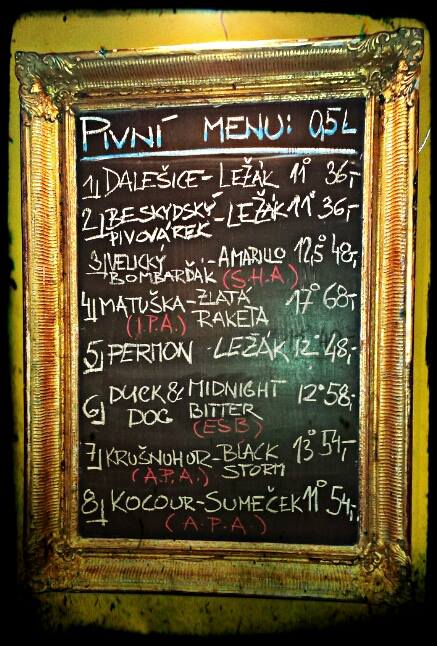 PIVNÍ MENU: 0,5L
1) DALEŠICE - LEŽÁK 11° 36,-
2) BESKYDSKÝ - LEŽÁK 11° 36,-
PIVOVÁREK
3) VELICKÝ - AMARILLO 12,5° 48,-
BOMBARĎÁK (S.H.A.)
4) MATUŠKA - ZLATÁ 17° 68,-
(I.P.A.) RAKETA
5) PERMON - LEŽÁK 12° 48,-
6) DUCK & MIDNIGHT 12° 58,-
DOG BITTER
(ESB)
7) KRUŠNOHOR - BLACK 13° 54,-
(A.P.A.) STORM
8) KOCOUR - SUMEČEK 11° 54,-
(A.P.A.)